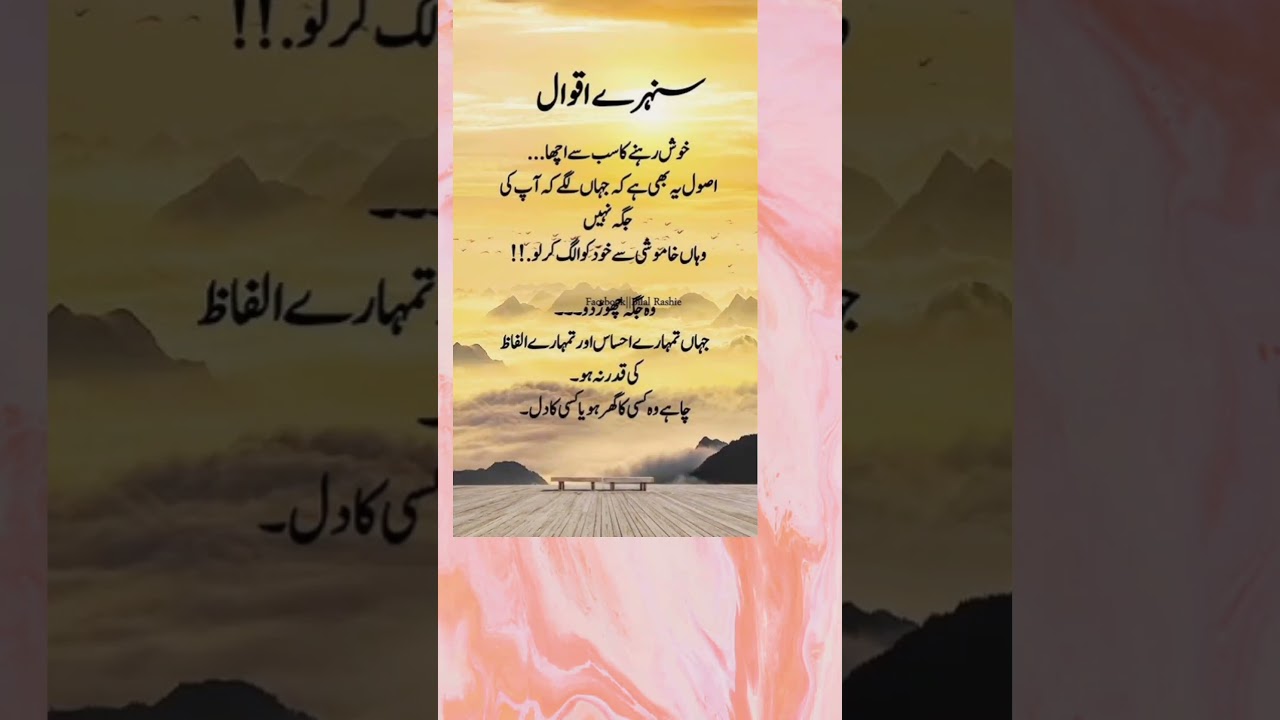 سنہرے اقوال
خوش رہنے کا سب سے اچھا...
اصول یہ بھی ہے کہ جہاں لگے کہ آپ کی
جگہ نہیں
وہاں خاموشی سے خود کو الگ کر لو.!!
Facebook||Bilal Rashie
وہ جگہ چھوڑ دو۔۔۔
جہاں تمہارے احساس اور تمہارے الفاظ
کی قدر نہ ہو۔
چاہے وہ کسی کا گھر ہو یا کسی کا دل۔